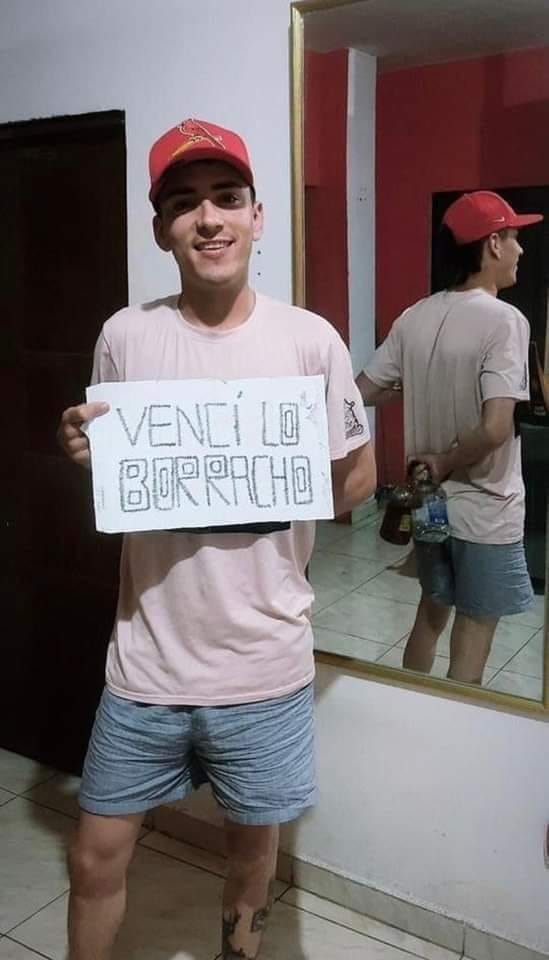 VENCÍ LO
BORRACHO